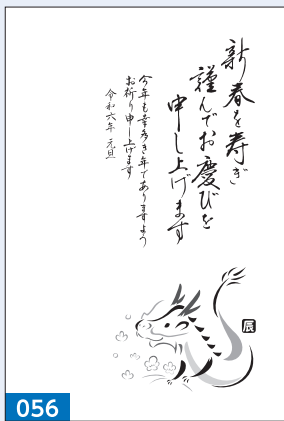 新春を寿ぎ
謹んでお慶びを
申し上げます
今年も幸多き年でありますよう
お祈り申し上げます
令和六年 元旦
辰
056